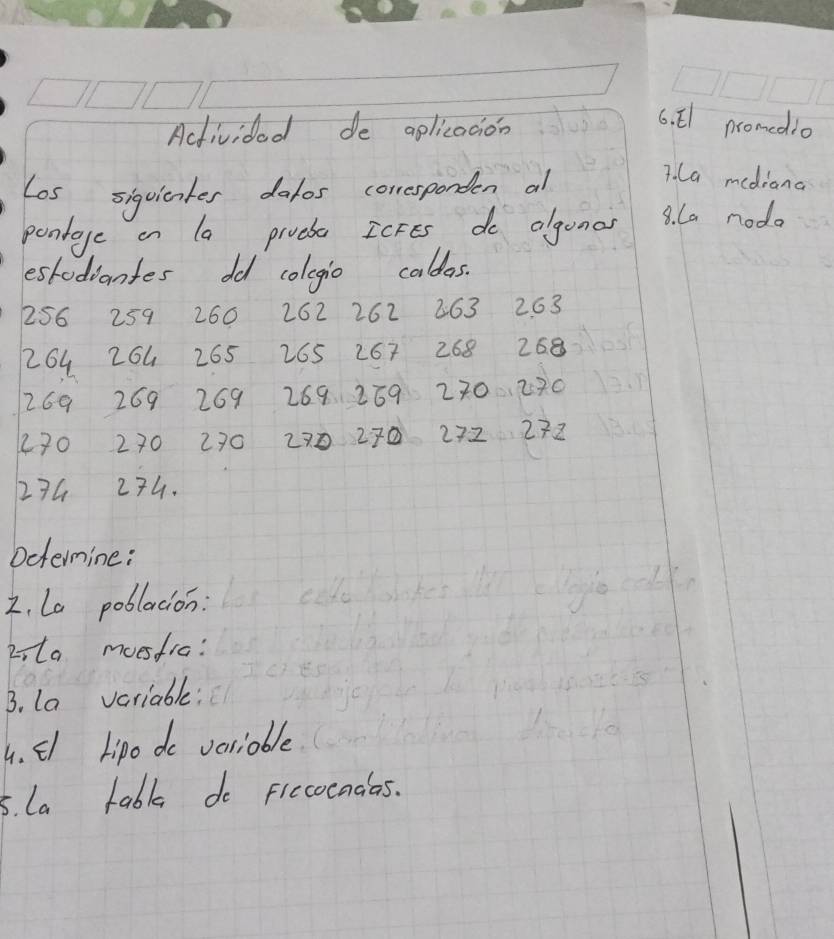 Actividad de aplicación
Los siguientes datos corresponden al
puntaje en la prueba ICFES de algunos
estudiantes del colegio caldas.
256 259 260 262 262 263 263
264 264 265 265 267 268 268
269 269 269 269 269 270 270
270 270 270 270 270 272 272
274 274.
Determine:
1. La población:
2. La muestra:
3. la variable:
4. El tipo de variable
5. La tabla de Frecuencias.
6. El promedio
7. La mediana
8. La moda